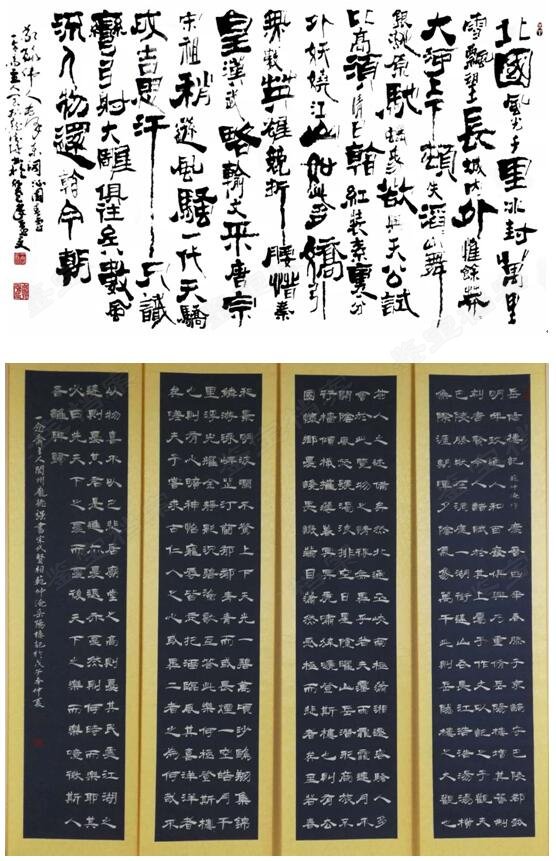 北國風光千里冰封萬里
雪飄望長城內外惟餘莽莽
大河上下頓失滔滔山舞
銀蛇原馳蠟象欲與天公試
比高須晴日看紅裝素裹分
外妖嬈江山如此多嬌引
無數英雄競折腰惜秦
皇漢武略輸文采唐宗
宋祖稍遜風騷一代天驕
成吉思汗只識
彎弓射大雕俱往矣數風
流人物還看今朝
岳陽樓記 范仲淹作 慶曆四年春滕子京謫守巴陵郡越
明年政通人和百廢具興乃重修岳陽樓增其舊制
刻唐賢今人詩賦於其上屬予作文以記之予觀夫
巴陵勝狀在洞庭一湖銜遠山吞長江浩浩湯湯橫
無際涯朝暉夕陰氣象萬千此則岳陽樓之大觀也
前人之述備矣然則北通巫峽南極瀟湘遷客騷人多
會於此覽物之情得無異乎若夫霪雨霏霏連月不
開陰風怒號濁浪排空日星隱曜山岳潛形商旅不
行檣傾楫摧薄暮冥冥虎嘯猿啼登斯樓也則有去
國懷鄉憂讒畏譏滿目蕭然感極而悲者矣至若春
和景明波瀾不驚上下天光一碧萬頃沙鷗翔集錦
鱗游泳岸芷汀蘭郁郁青青而或長煙一空皓月千
里浮光耀金靜影沉璧漁歌互答此樂何極登斯樓
也則有心曠神怡寵辱偕忘把酒臨風其喜洋洋者
矣嗟夫予嘗求古仁人之心或異二者之為何哉不
以物喜不以己悲居廟堂之高則憂其民處江湖之
遠則憂其君是進亦憂退亦憂然則何時而樂耶其
必曰先天下之憂而憂後天下之樂而樂噫微斯人
吾誰與歸
一念齋主人閬州龐德漢書宋代賢相范仲淹岳陽樓記於戊子年仲夏